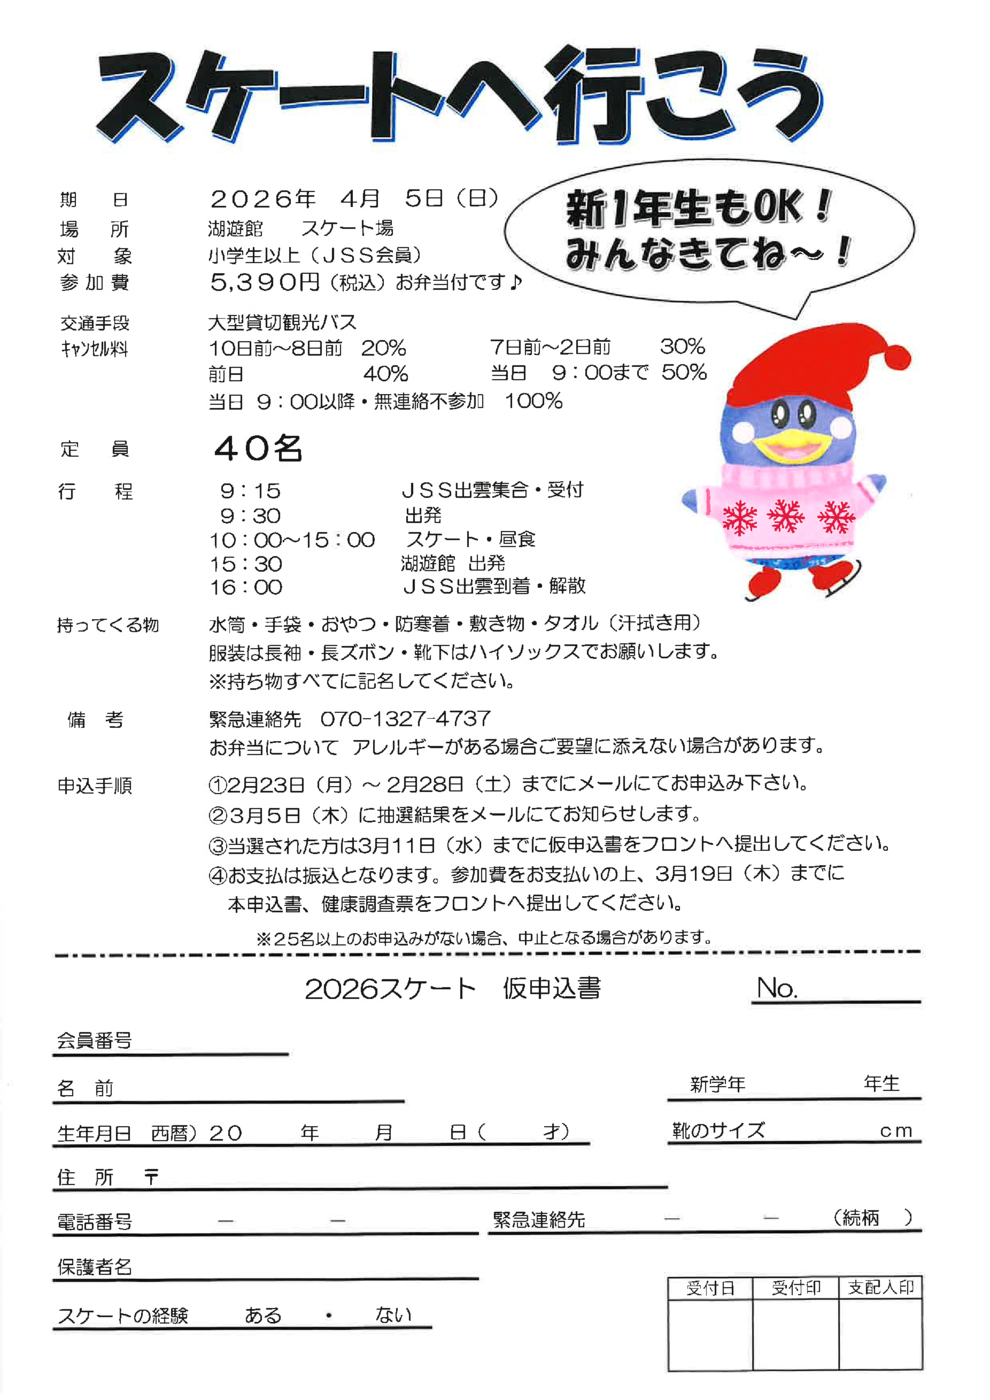 スケートへ行こう
新1年生もOK！
みんなきてね～！
期　日　２０２６年　４月　５日（日）
場　所　湖遊館　スケート場
対　象　小学生以上（ＪＳＳ会員）
参加費　５,３９０円（税込）お弁当付です♪
交通手段　大型貸切観光バス
ｷｬﾝｾﾙ料　10日前～8日前　20%　7日前～2日前　30%
前日　40%　当日　９：００まで　50%
当日　９：００以降・無連絡不参加　100%
定　員　４０名
行　程　９：１５　ＪＳＳ出雲集合・受付
９：３０　出発
１０：００～１５：００　スケート・昼食
１５：３０　湖遊館　出発
１６：００　ＪＳＳ出雲到着・解散
持ってくる物　水筒・手袋・おやつ・防寒着・敷き物・タオル（汗拭き用）
服装は長袖・長ズボン・靴下はハイソックスでお願いします。
※持ち物すべてに記名してください。
備　考　緊急連絡先　070-1327-4737
お弁当について　アレルギーがある場合ご要望に添えない場合があります。
申込手順　①2月23日（月）～2月28日（土）までにメールにてお申込み下さい。
②３月５日（木）に抽選結果をメールにてお知らせします。
③当選された方は3月11日（水）までに仮申込書をフロントへ提出してください。
④お支払は振込となります。参加費をお支払いの上、3月19日（木）までに
本申込書、健康調査票をフロントへ提出してください。
※２５名以上のお申込みがない場合、中止となる場合があります。
2026スケート　仮申込書　No.
会員番号
名　前　新学年　年生
生年月日　西暦）２０　年　月　日（　才）　靴のサイズ　ｃｍ
住　所　〒
電話番号　－　－　緊急連絡先　－　－　（続柄　）
保護者名
スケートの経験　ある　・　ない
受付日　受付印　支配人印